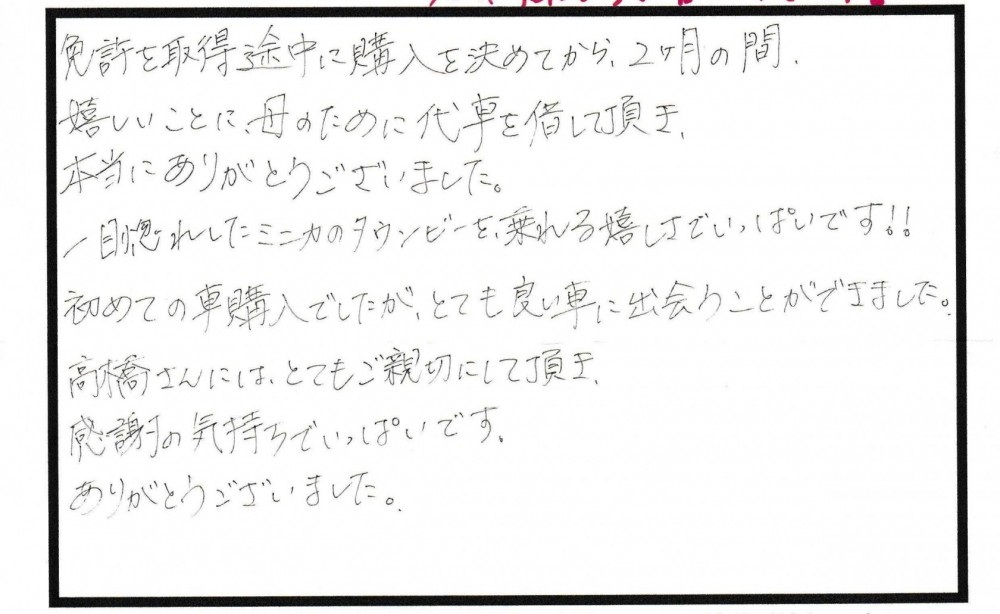 免許を取得途中に購入を決めてから、2ヶ月の間、
嬉しいことに、母のために代車を借して頂き、
本当にありがとうございました。
一目惚れしたミニカのタウンビーを、乗れる嬉しさでいっぱいです!!
初めての車購入でしたが、とても良い車に出会うことができました。
高橋さんには、とてもご親切にして頂き、
感謝の気持ちでいっぱいです。
ありがとうございました。